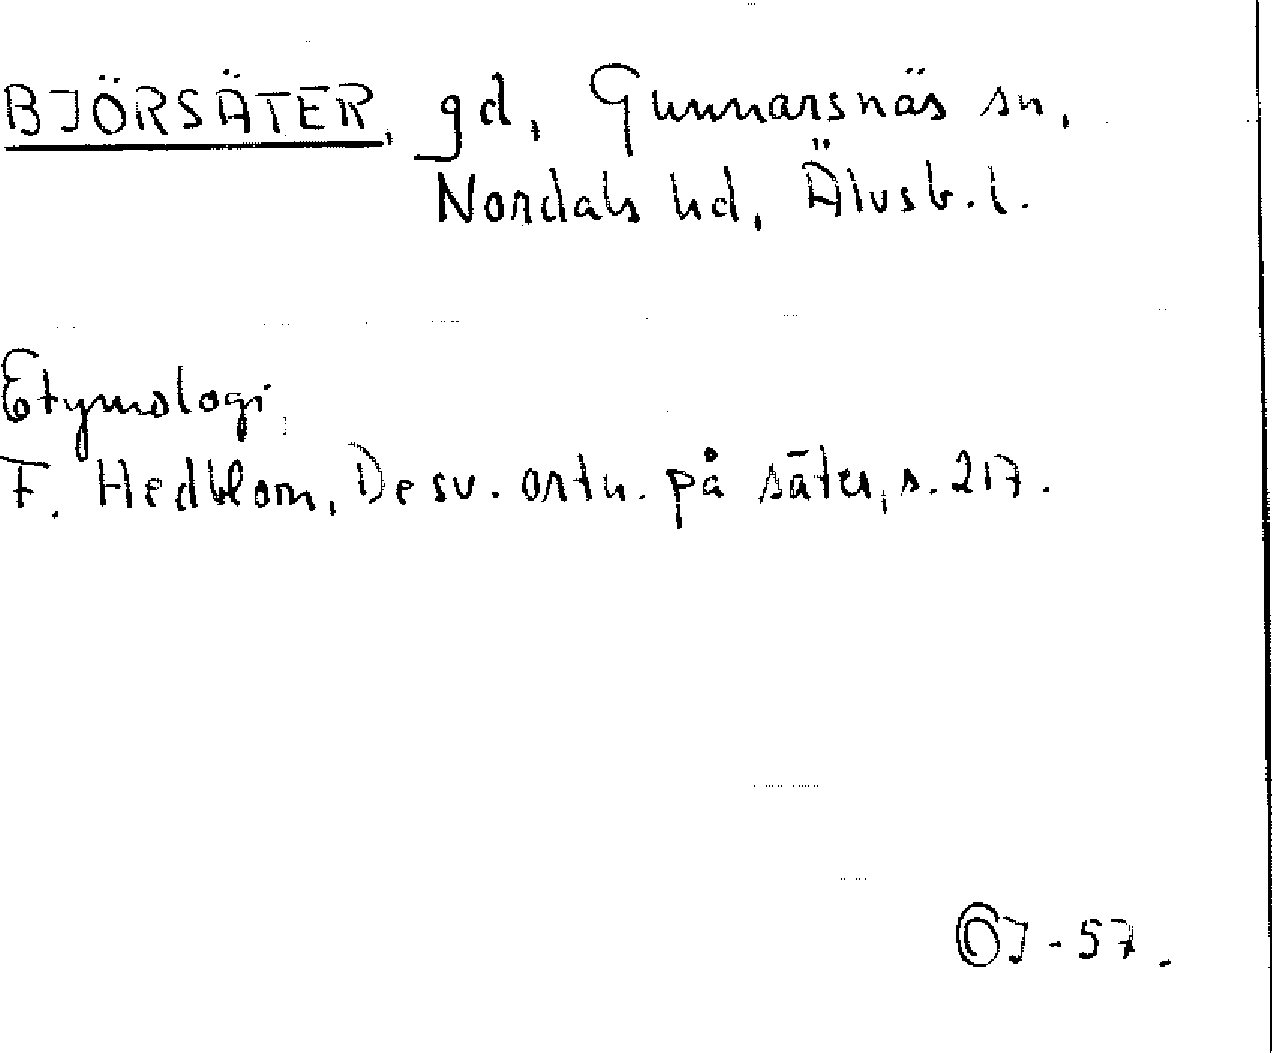 BJÖRSÄTER, gd, Gunnarsnäs sn,
Nordals hd, Älvsb. l.
Etymologi,
F. Hedblom, De sv. ortn. på säter, s. 217.
OJ-57.